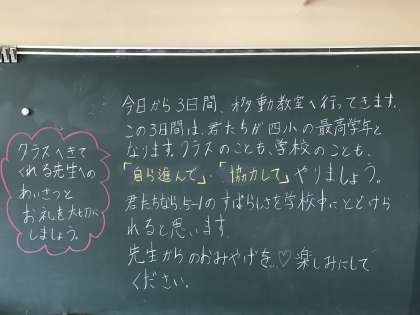 今日から3日間、移動教室へ行ってきます。
この3日間は、君たちが四小の最高学年と
なります。クラスのことも、学校のことも、
「自ら進んで」・「協力して」やりましょう。
君たちなら5-1のすばらしさを学校中にとどけら
れると思います。
先生からのおみやげを…♡楽しみにして
ください。
クラスへきて
くれる先生への
あいさつと
お礼を大切に
しましょう。